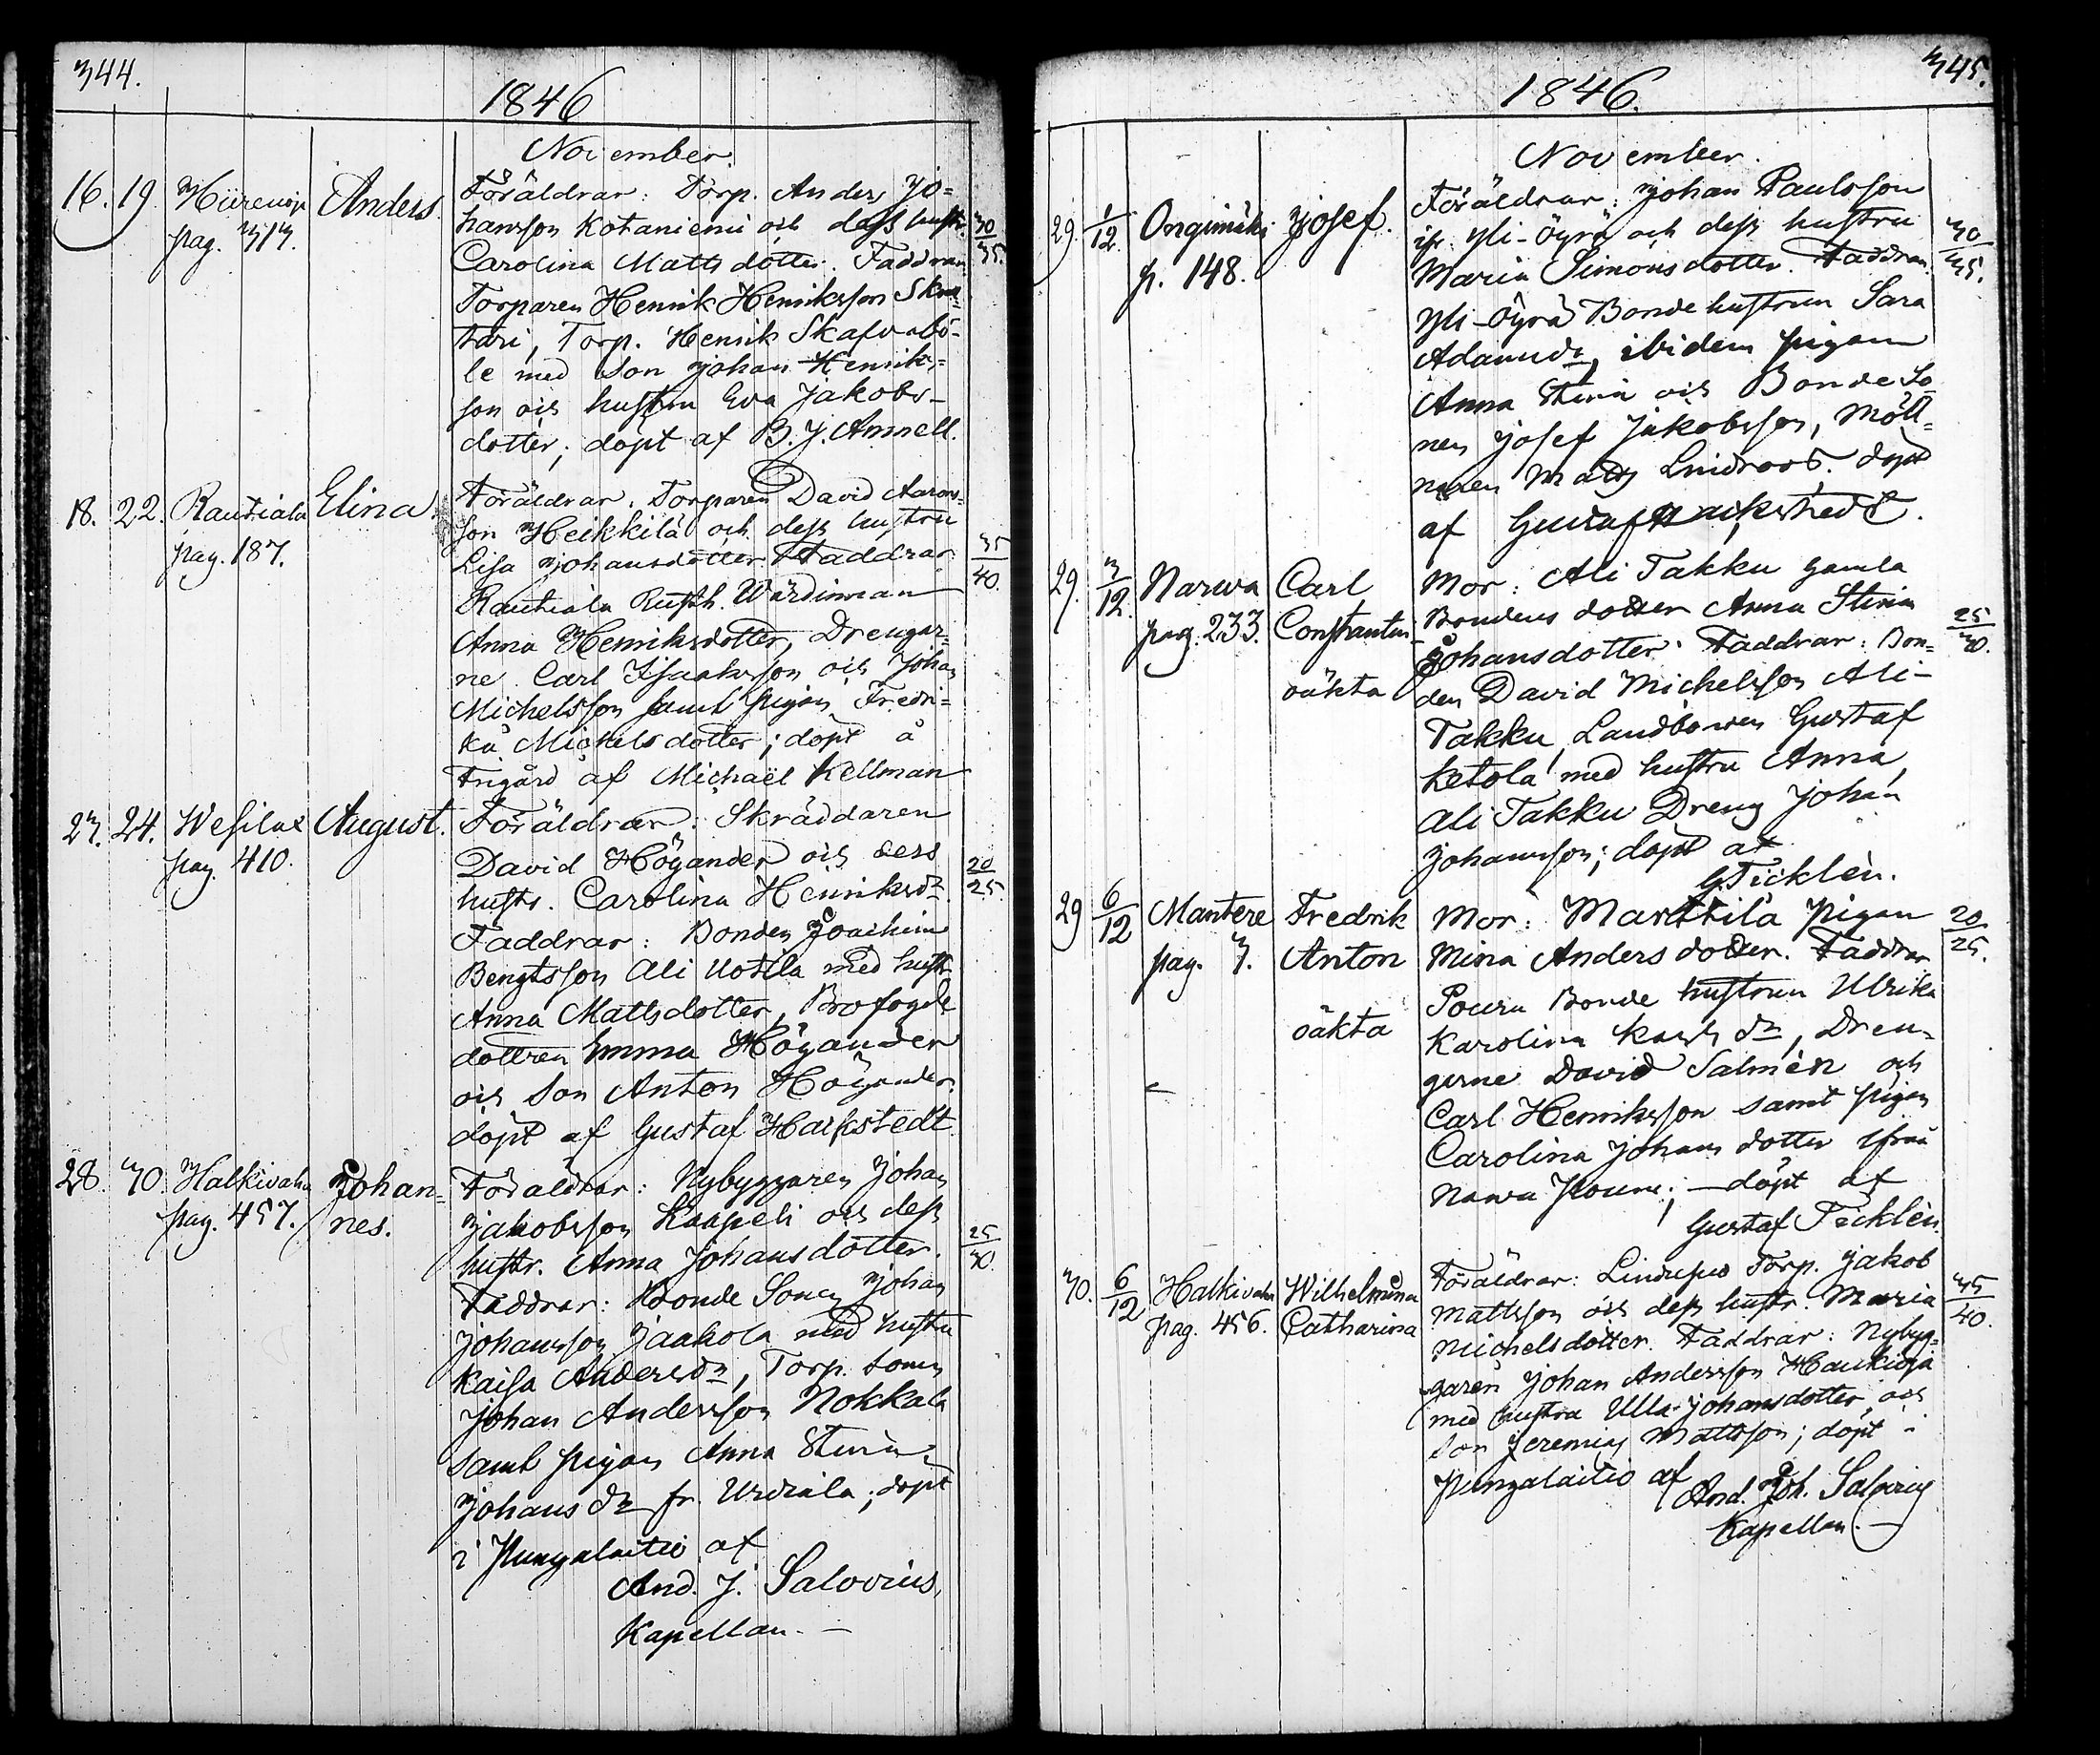 344.
1846
November.
16. 19. Hiirenoja Anders. Föräldrar: Torp. Anders Jo=
pag. 313. hansson Kotaniemi och dess hustr. 30/35.
Carolina Mattsdotter. Faddrar
Torparen Henrik Henriksson
Torp. Henrik Skafvabö-
le med Son Johan Henriks=
son och hustru Eva Jakobs-
dotter; döpt af B. J. Amnell.
18. 22. Rautiala Elina. Föräldrar: Torparen David Aarons=
pag. 187. son Heikkilä och dess hustru 35/40.
Lisa Johansdotter. Faddrar
Rautiala Rusth. Wärdinnan
Anna Henriksdotter, Drengar=
ne Carl Isaaksson och Johan
Michelsson samt pigan Fredri=
ka Michelsdotter; döpt å
Frigård af Michaël Kellman
23. 24. Wesilax August. Föräldrar: Skräddaren
pag. 410. David Högander och dess 20/25.
hustr. Carolina Henriksdr.
Faddrar: Bonden Joachim
Bengtsson Ali Uotila med hustr
Anna Mattsdotter, Brofogde
dottren Emma Högander
och Son Anton Högander.
döpt af Gustaf Harkstedt
28. 30. Halkivaha Johan= Föräldrar: Nybyggaren Johan
pag. 457. nes. Jakobsson Kaapeli och dess
hustr. Anna Johansdotter. 25/30.
Faddrar: Bonde Sonen Johan
Johansson Jaakola med hustru
Kaisa Andersdr, Torp. sonen
Johan Andersson Nokkala
samt pigan Anna Stina
Johansdr fr. Urdiala; döpt
i Pungalaitio af
And. J. Salovius,
Kapellan.
345.
1846.
November.
29. 1/12. Ongimäki Josef. Föräldrar: Johan Paulsson
p. 148. ifr. Yli-Öyrä och dess hustru 30/35.
Maria Simonsdotter. Faddrar.
Yli-Öyrä Bonde hustrun Sara
Adamsdr, ibidem pigan
Anna Stina och Bonde So=
nen Josef Jakobsson, Möll=
naren Matts Lindroos. döpt
af Gustaf Harkstedt.
29. 3/12. Narwa Carl Mor: Ali Takku gamla
pag. 233. Constantin Bondens dotter Anna Stina 25/30.
Johansdotter. Faddrar: Bon=
oäkta den David Michelsson Ali-
Takku, Landbonden Gustaf
Ketola med hustru Anna,
Ali Takku Dreng Johan
Johansson; döpt af
G. Ticklén.
29 6/12 Mantere Fredrik Mor: Marttila pigan 20/25.
pag. 7. Anton Mina Andersdotter. Faddrar
Pouru Bonde hustrun Ulrika
oäkta Karolina dr, Dren=
garne David Salmén och
Carl Henriksson samt pigan
Carolina Johansdotter ifrån
Narwa Pouru; — döpt af
Gustaf Ticklén.
30. 6/12 Halkivaha Wilhelmina Föräldrar: Torp. Jakob 35/40.
pag. 456. Catharina Mattsson och dess hustr. Maria
Michelsdotter. Faddrar: Nybyg=
garen Johan Andersson Haukioja
med hustru Ulla Johansdotter, och
Son Jeremias Mattsson; döpt i
Pungalaitio af And. Joh. Salovius
Kapellan. —